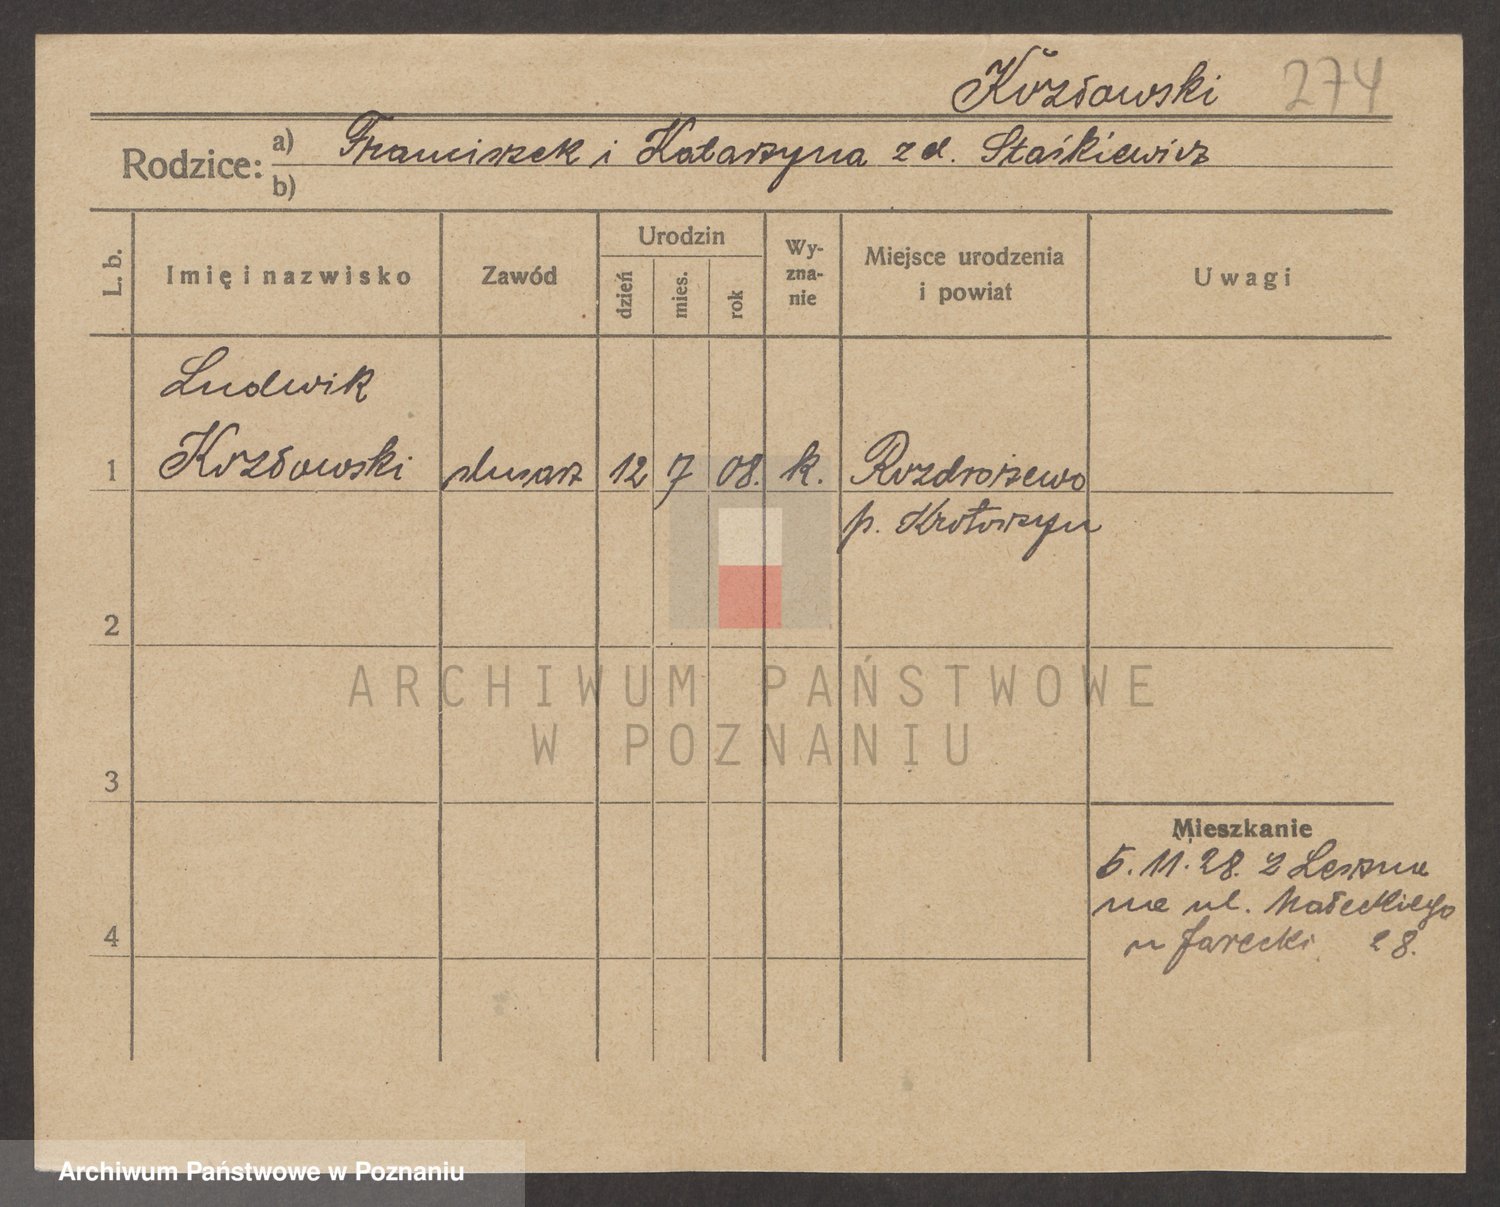 Kozłowski 274
Rodzice: a) Franciszek i Katarzyna z d. Staśkiewicz
b)
L. b. Imię i nazwisko Zawód Urodzin dzień mies. rok Wyznanie Miejsce urodzenia i powiat Uwagi
Ludwik
1 Kozłowski ślusarz 12 7 08. k. Rozdrożewo
p. Krotoszyn
2
ARCHIWUM PAŃSTWOWE
W POZNANIU
3
Mieszkanie
5.11.28. z Leszna
na ul. Małeckiego
4 u Jarecki 28.
Archiwum Państwowe w Poznaniu